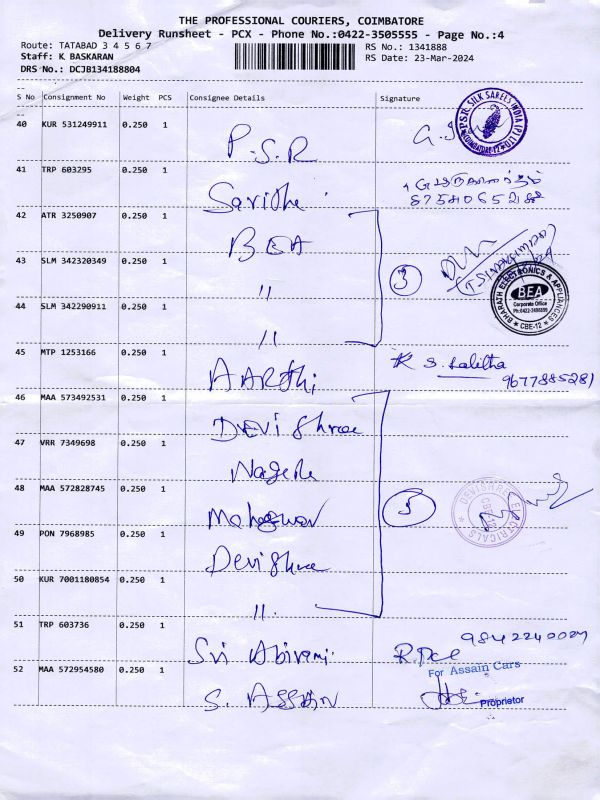 THE PROFESSIONAL COURIERS, COIMBATORE
Delivery Runsheet - PCX - Phone No.:0422-3505555 - Page No.:4
Route: TATABAD 3 4 5 6 7
RS No.: 1341888
Staff: K BASKARAN
RS Date: 23-Mar-2024
DRS No.: DCJB134188804
S No Consignment No Weight PCS Consignee Details Signature
40 KUR 531249911 0.250 1 P.S.R
P.S.R SILK SAREES INDIA (P) LTD
COIMBATORE-12
41 TRP 603295 0.250 1 Savithe
8754065288
42 ATR 3250907 0.250 1 BEA
43 SLM 342320349 0.250 1 "
3
BHARATH ELECTRONICS & APPLIANCES
BEA
Corporate Office
CBE-12
44 SLM 342290911 0.250 1 "
45 MTP 1253166 0.250 1 AARthi
K S. Lalitha
9677885281
46 MAA 573492531 0.250 1 DEVi Shree
47 VRR 7349698 0.250 1
48 MAA 572828745 0.250 1
5
ELECTRICALS
49 PON 7968985 0.250 1 Devi Shree
50 KUR 7001180854 0.250 1 "
51 TRP 603736 0.250 1 Sri Abirami
9842240027
52 MAA 572954580 0.250 1
For Assain Cars
Proprietor